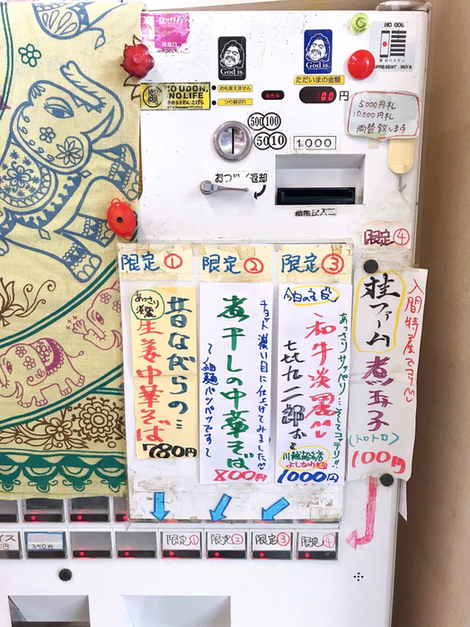 NO 006
PRESENT INIYA
God is.
God is.
NO UDON, NO LIFE
お札使えません
つり銭切れ
ただいまの金額
00円
5000円札
10,000円札
両替致します
500 100
50 10
1000
おつり/返却
限定④
限定①
限定②
限定③
あっさり
昔ながらの…
生姜中華そば
780円
煮干しの中華そば
チョット濃い目に仕上げてみました
〜細麺パッツパツです〜
800円
今日の主役
あっさりサッパリ…そしてコテリ!!
和牛淡麗
1000円
入間特産です
桂ファーム
煮玉子
(トロトロ)
100円
限定①
限定②
限定③
限定④